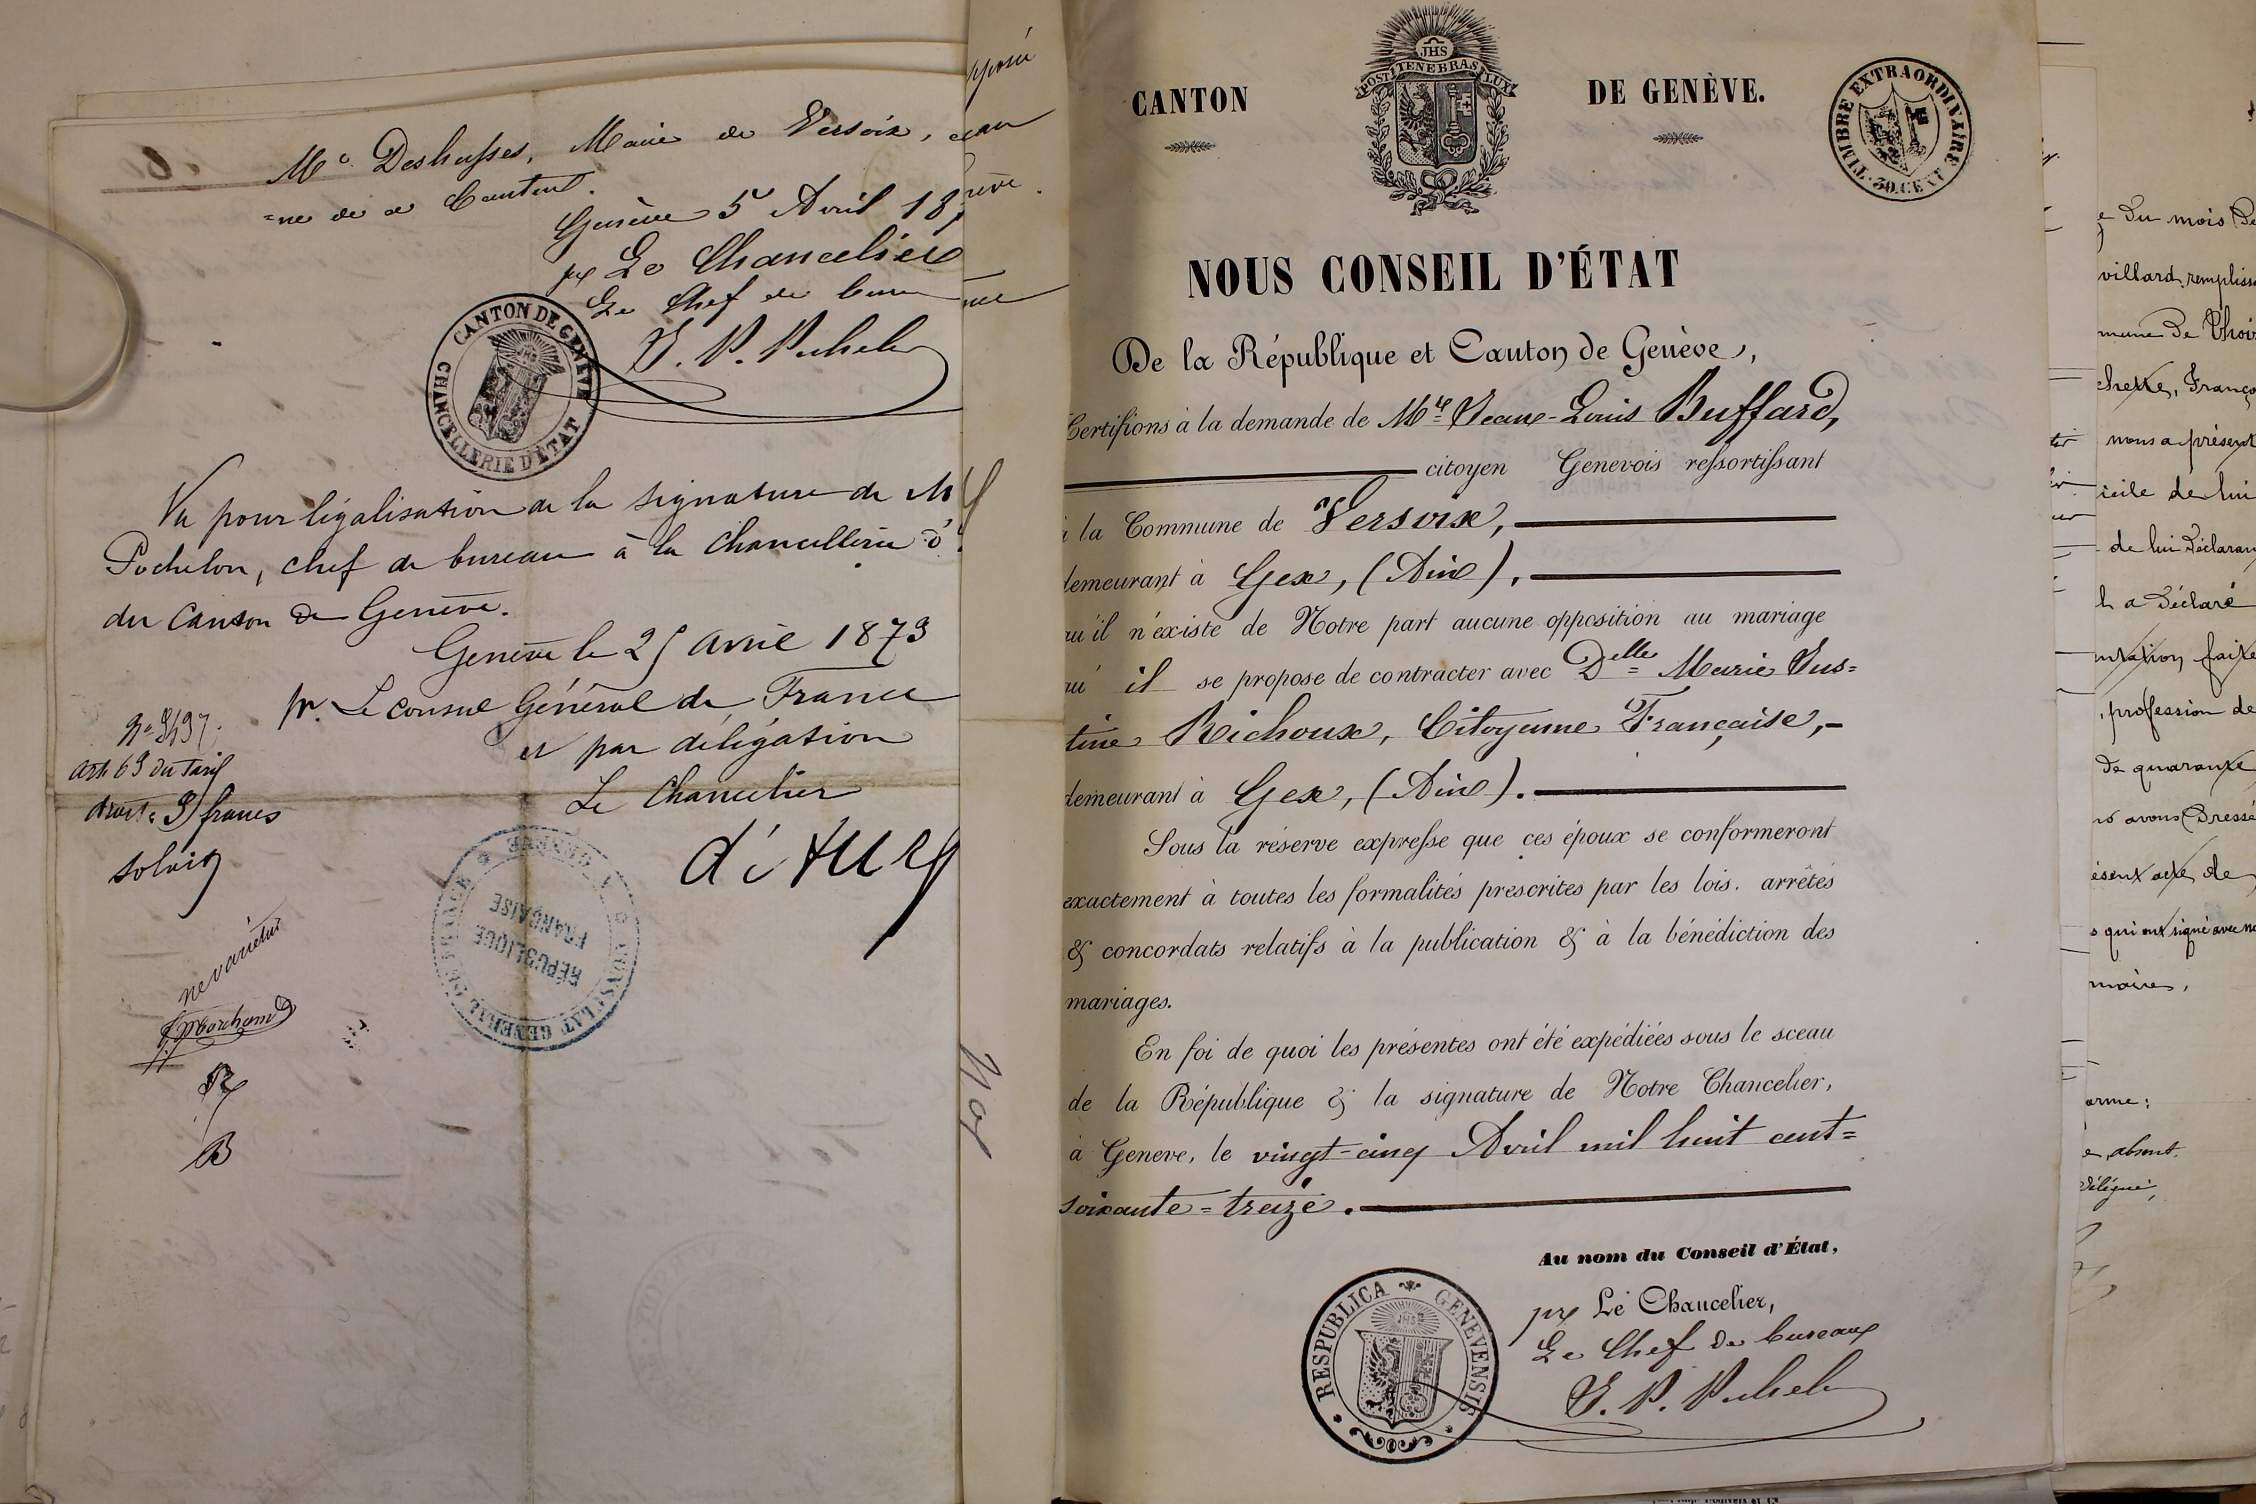 Mc Deshusses, Maire de Versoix,
=ne de ce Canton.
Genève 5 Avril 18
pr Le Chancelier
Le Chef de bureau
J. P. Pochelon
CANTON DE GENÈVE
CHANCELLERIE D'ÉTAT
Vu pour légalisation de la signature de M
Pochelon, chef de bureau à la Chancellerie d'
du Canton de Genève.
Genève le 25 avril 1873
pr. Le Consul Général de France
et par délégation
Le Chancelier
No 3497.
Art. 63 du Tarif
droit: 3 francs
CONSULAT GÉNÉRAL DE FRANCE À GENÈVE
RÉPUBLIQUE
FRANÇAISE
ne varietur
B
CANTON
DE GENÈVE.
JHS
POST TENEBRAS LUX
TIMBRE EXTRAORDINAIRE
30. CENT.
NOUS CONSEIL D'ÉTAT
De la République et Canton de Genève,
Certifions à la demande de Mr Jean-Louis Buffard,
citoyen Genevois ressortissant
à la Commune de Versoix,
demeurant à Gex, (Ain),
qu'il n'existe de Notre part aucune opposition au mariage
qu' il se propose de contracter avec Delle Marie Jus=
tine Richoux, Citoyenne Française,-
demeurant à Gex, (Ain).
Sous la réserve expresse que ces époux se conformeront
exactement à toutes les formalités prescrites par les lois. arrêtés
& concordats relatifs à la publication & à la bénédiction des
mariages.
En foi de quoi les présentes ont été expédiées sous le sceau
de la République & la signature de Notre Chancelier,
à Genève, le vingt-cinq Avril mil huit cent=
soixante=treize.
Au nom du Conseil d'État,
pr Le Chancelier,
Le Chef de bureau
J. P. Pochelon
RESPUBLICA GENEVENSIS
JHS
du mois de
villard, remplissa
mune de Thoir
chette, Franço
nous a présent
icile de lui
de lui déclaran
h a déclaré
ntation faite
, profession de
de quarante
us avons dressé
ésent acte de
s qui ont signé avec no
maire.
orme:
absent.
délégué,